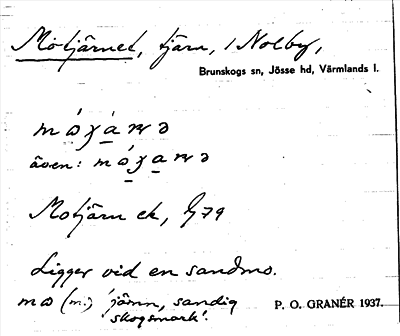 Mötjärnet, tjärn, i Nolby,
Brunskogs sn, Jösse hd, Värmlands l.
även:
Motjärn ek, G79
Ligger vid en sandmo.
(m.) 'jämn, sandig
skogsmark'.
P. O. GRANÉR 1937.